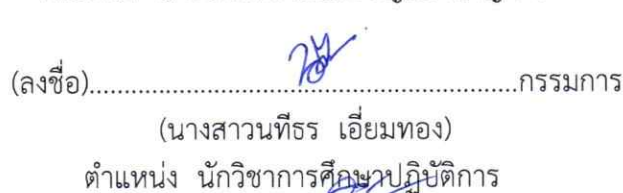 (ลงชื่อ)..................................................................กรรมการ
(นางสาวนทีธร เอี่ยมทอง)
ตำแหน่ง นักวิชาการศึกษาปฏิบัติการ